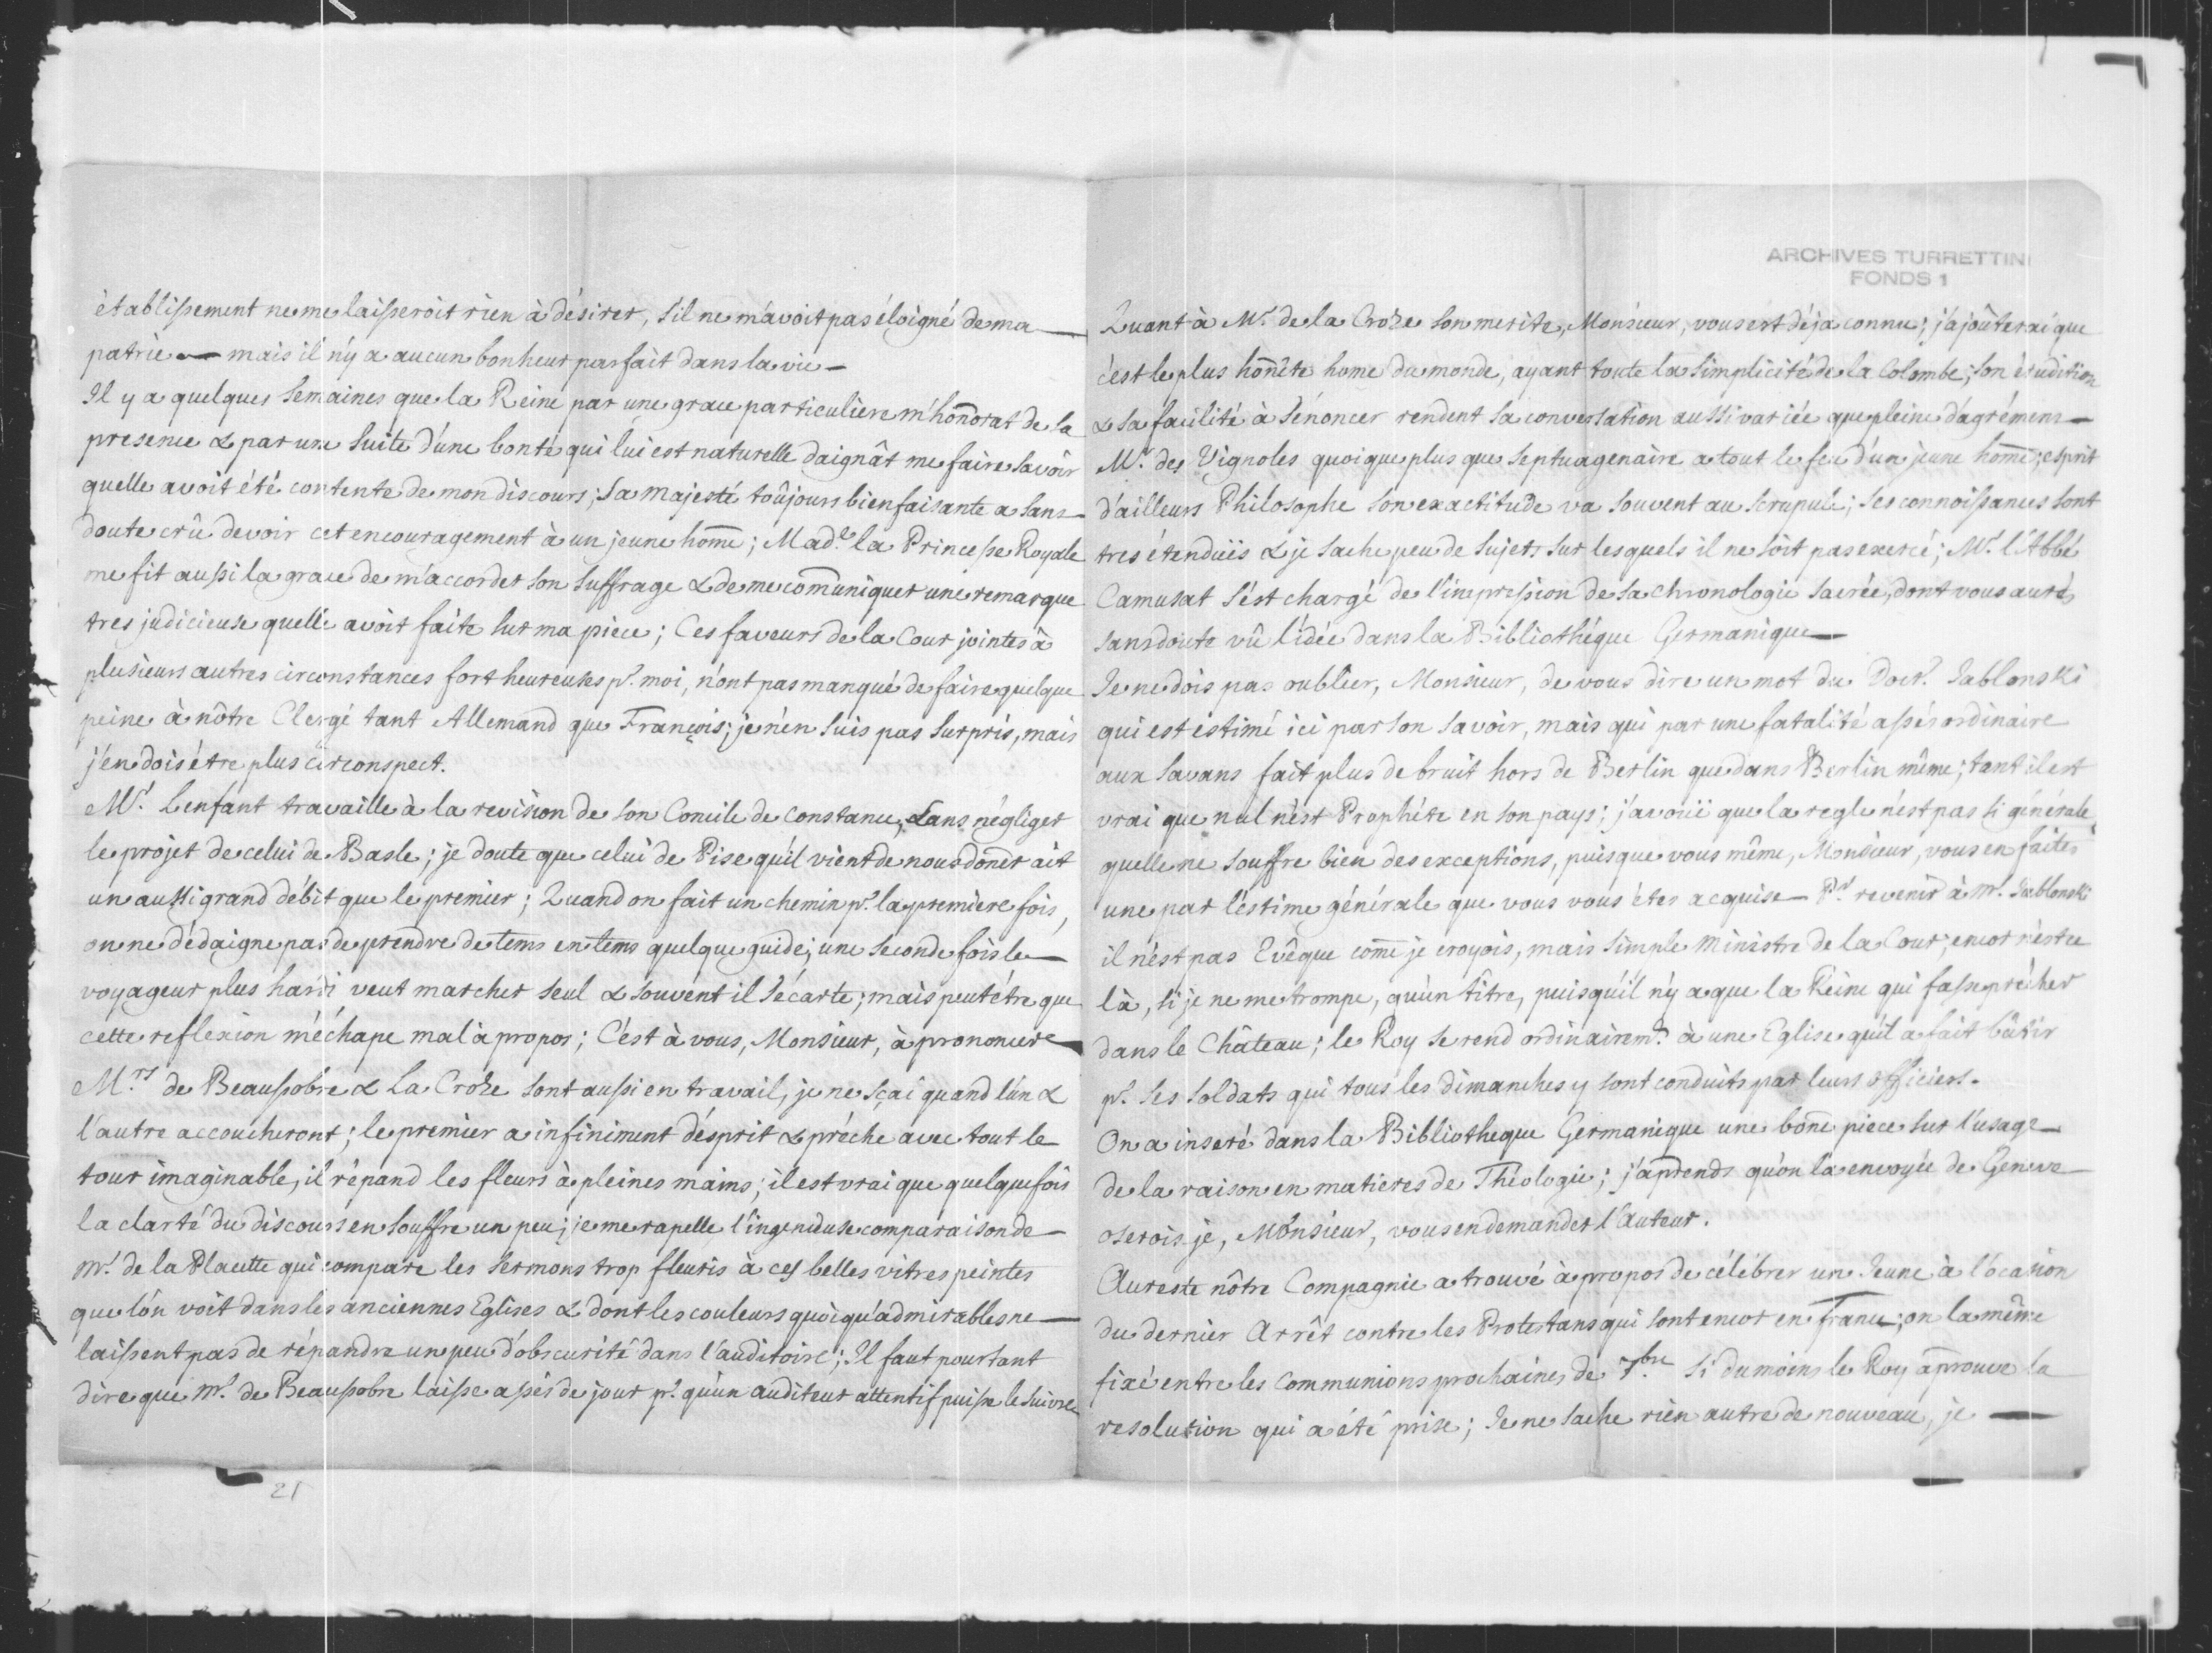 établissement ne me laisseroit rien à désirer, s'il ne m'avoit pas éloigné de ma
patrie — mais il n'y a aucun bonheur parfait dans la vie —
Il y a quelques semaines que la Reine par une grace particuliere m'honorat de sa
presence & par une suite d'une bonté qui lui est naturelle daignât me faire savoir
quelle avoit été contente de mon discours; Sa majesté toûjours bienfaisante a sans
doute crû devoir cet encouragement à un jeune home; Mad.e la Princesse Royale
me fit aussi la grace de m'accorder son suffrage & de me comuniquer une remarque
tres judicieuse quelle avoit faite sur ma piece; Ces faveurs de la Cour jointes à
plusieurs autres circonstances fort heureuses pr. moi, n'ont pas manqué de faire quelque
peine à nôtre Clergé tant Allemand que François; je n'en suis pas surpris, mais
j'en dois être plus circonspect.
Mr. Lenfant travaille à la revision de son Concile de Constance, sans négliger
le projet de celui de Basle; je doute que celui de Pise qu'il vient de nous doner ait
un aussi grand débit que le premier; Quand on fait un chemin pr. la premiere fois,
on ne dédaigne pas de prendre de tems en tems quelque guide; une seconde fois le
voyageur plus hardi veut marcher seul & souvent il s'écarte; mais peut être que
cette reflexion m'échape mal à propos; C'est à vous, Monsieur, à prononcer
M.rs de Beausobre & La Croze sont aussi en travail, je ne sçai quand l'un &
l'autre accoucheront; le premier a infiniment d'esprit & prêche avec tout le
tour imaginable, il répand les fleurs à pleines mains; il est vrai que quelquefois
la clarté du discours en souffre un peu; je me rapelle l'ingenieuse comparaison de
mr. de la Placette qui compare les sermons trop fleuris à ces belles vitres peintes
que l'on voit dans les anciennes Eglises & dont les couleurs quoiqu'admirables ne
laissent pas de répandre un peu d'obscurité dans l'auditoire; Il faut pourtant
dire que mr. de Beausobre laisse assés de jour pr. qu'un auditeur attentif puisse le suivre
21
ARCHIVES TURRETTINI
FONDS 1
Quant à Mr. de la Croze son merite, Monsieur, vous est déja connu; j'ajoûterai que
c'est le plus honête home du monde, ayant toute la simplicité de la Colombe; son érudition
& sa facilité à s'énoncer rendent sa conversation aussi variée que pleine d'agrémens —
Mr. des Vignoles quoique plus que septuagenaire a tout le feu d'un jeune home; esprit
d'ailleurs Philosophe son exactitude va souvent au scrupule; ses connoissances sont
tres étenduës & je sache peu de sujets sur lesquels il ne soit pas exercé; Mr. l'Abbé
Camusat s'est chargé de l'impression de sa chronologie sacrée, dont vous aurés
sans doute vû l'idée dans la Bibliothéque Germanique —
Je ne dois pas oublier, Monsieur, de vous dire un mot du Doct.r Jablonski
qui est estimé ici par son savoir, mais qui par une fatalité assés ordinaire
aux savans fait plus de bruit hors de Berlin que dans Berlin même; tant il est
vrai que nul n'est Prophéte en son pays; j'avouë que la regle n'est pas si générale
quelle ne souffre bien des exceptions, puisque vous même, Monsieur, vous en faites
une par l'estime générale que vous vous êtes acquise — Pr. revenir à Mr. Jablonski
il n'est pas Evêque come je croyois, mais simple ministre de la Cour; encor n'est ce
là, si je ne me trompe, qu'un titre, puisqu'il n'y a que la Reine qui fasse prêcher
dans le Château; le Roy se rend ordinairem.t à une Eglise qu'il a fait bâtir
pr. ses soldats qui tous les dimanches y sont conduits par leurs officiers.
On a inseré dans la Bibliotheque Germanique une bone piece sur l'usage
de la raison en matieres de Théologie; j'aprends qu'on l'a envoyée de Geneve
oserois je, Monsieur, vous en demander l'Auteur.
Au reste nôtre Compagnie a trouvé à propos de célébrer un Jeune à l'ocasion
du dernier Arrêt contre les Protestans qui sont encor en France; on l'a même
fixé entre les Communions prochaines de 7.bre si du moins le Roy aprouve la
resolution qui a été prise; Je ne sache rien autre de nouveau, je —